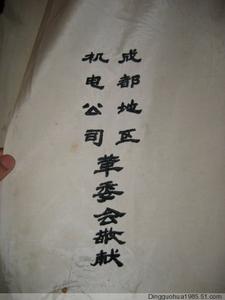 成都地区
机电公司
革委会敬献
Dingguohua1965.51.com